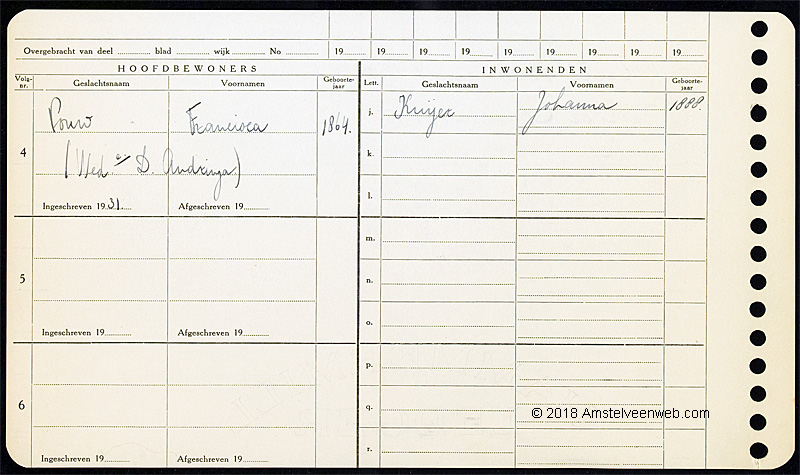 Overgebracht van deel ............ blad ............ wijk ............ No ............ 19........ 19........ 19........ 19........ 19........ 19........ 19........ 19........ 19........
HOOFDBEWONERS INWONENDEN
Volg-nr. Geslachtsnaam Voornamen Geboorte-jaar Lett. Geslachtsnaam Voornamen Geboorte-jaar
4 Pouw Francisca 1864. j. Kuijer Johanna 1888.
(Wed e/v D. Andringa) k.
l.
Ingeschreven 1931. Afgeschreven 19............
m.
5 n.
o.
Ingeschreven 19............ Afgeschreven 19............
p.
6 q.
© 2018 Amstelveenweb.com
r.
Ingeschreven 19............ Afgeschreven 19............